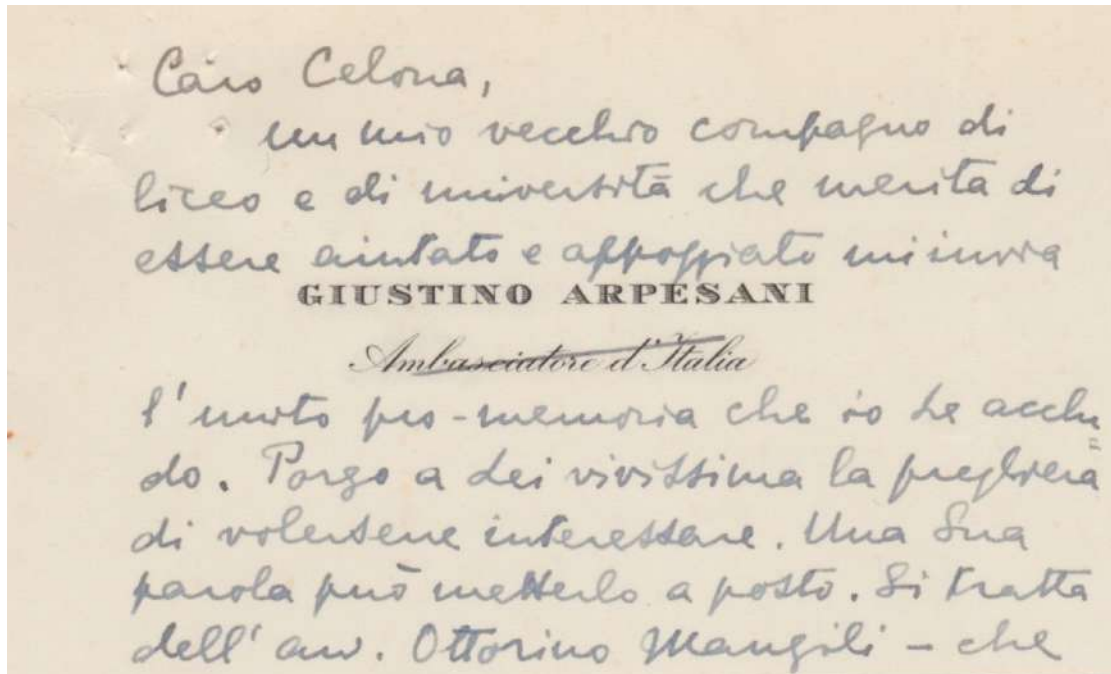 Caro Celona,
un mio vecchio compagno di
liceo e di università che merita di
essere aiutato e appoggiato mi invia
GIUSTINO ARPESANI
Ambasciatore d'Italia
l'unito pro-memoria che io Le acclu=
do. Porgo a Lei vivissima la preghiera
di volersene interessare. Una Sua
parola può metterlo a posto. Si tratta
dell'avv. Ottorino Mangili - che